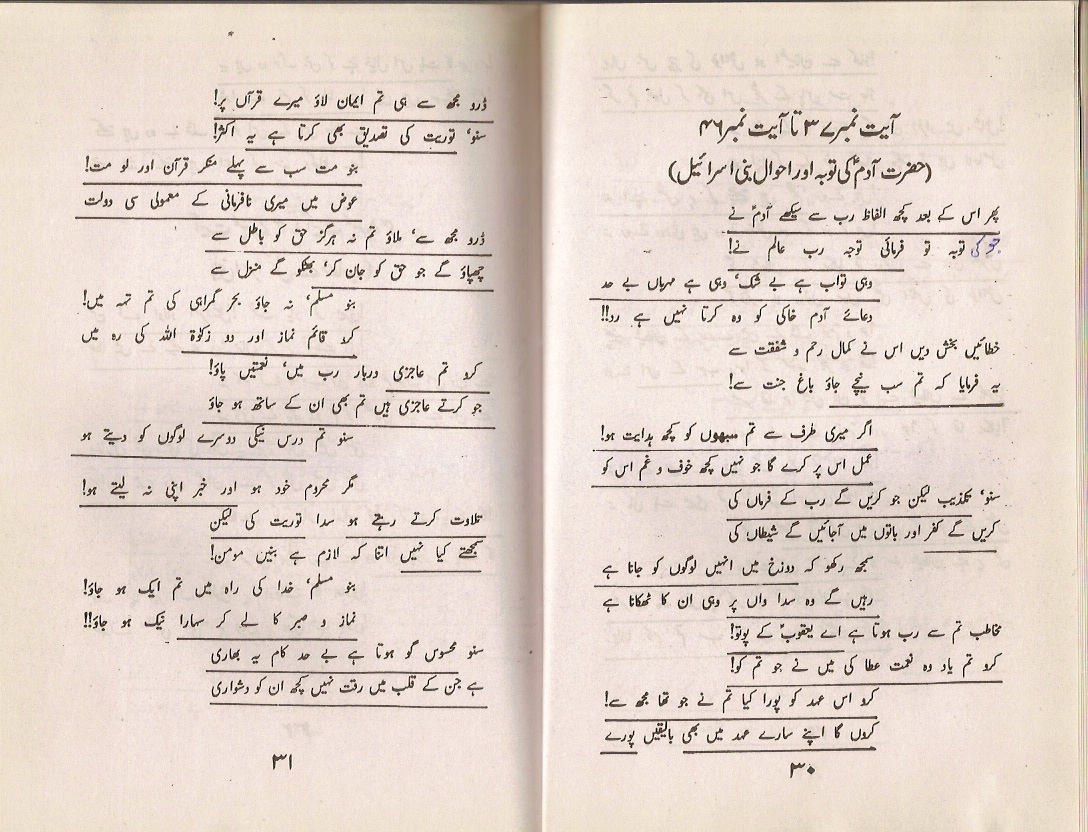 آیت نمبر ۳۷ تا آیت نمبر ۴۶
(حضرت آدمؑ کی توبہ اور احوال بنی اسرائیل)
پھر اس کے بعد کچھ الفاظ رب سے سیکھے آدمؑ نے
جو کی توبہ تو فرمائی توجہ رب عالم نے!
وہی تواب ہے بے شک، وہی ہے مہرباں بے حد
دعائے آدم خاکی کو وہ کرتا نہیں ہے رد!!
خطائیں بخش دیں اس نے کمال رحم و شفقت سے
یہ فرمایا کہ تم سب نیچے جاؤ باغ جنت سے!
اگر میری طرف سے تم سبھوں کو کچھ ہدایت ہو!
عمل اس پر کرے گا جو نہیں کچھ خوف و غم اس کو
سنو، تکذیب لیکن جو کریں گے رب کے فرماں کی
کریں گے کفر اور باتوں میں آجائیں گے شیطاں کی
سمجھ رکھو کہ دوزخ میں انہیں لوگوں کو جانا ہے
رہیں گے وہ سدا واں پر وہی ان کا ٹھکانا ہے
مخاطب تم سے رب ہوتا ہے اے یعقوبؑ کے پوتو!
کرو تم یاد وہ نعمت عطا کی میں نے جو تم کو!
کرو اس عہد کو پورا کیا تم نے جو تھا مجھ سے!
کروں گا اپنے سارے عہد میں بھی بالیقیں پورے
۳۰
ڈرو مجھ سے ہی تم ایمان لاؤ میرے قرآں پر!
سنو، توریت کی تصدیق بھی کرتا ہے یہ اکثر!
بنو مت سب سے پہلے منکر قرآن اور لو مت!
عوض میں میری نافرمانی کے معمولی سی دولت
ڈرو مجھ سے، ملاؤ تم نہ ہرگز حق کو باطل سے
چھپاؤ گے جو حق کو جان کر، بھٹکو گے منزل سے
بنو مسلم، نہ جاؤ بحر گمراہی کی تم تہہ میں!
کرو قائم نماز اور دو زکوٰۃ اللہ کی رہ میں
کرو تم عاجزی دربار رب میں، نعمتیں پاؤ!
جو کرتے عاجزی ہیں تم بھی ان کے ساتھ ہو جاؤ
سنو تم درس نیکی دوسرے لوگوں کو دیتے ہو
مگر محروم خود ہو اور خبر اپنی نہ لیتے ہو!
تلاوت کرتے رہتے ہو سدا توریت کی لیکن
سمجھتے کیا نہیں اتنا کہ لازم ہے بنیں مومن!
بنو مسلم، خدا کی راہ میں تم ایک ہو جاؤ!
نماز و صبر کا لے کر سہارا نیک ہو جاؤ!!
سنو محسوس گو ہوتا ہے بے حد کام یہ بھاری
ہے جن کے قلب میں رقت نہیں کچھ ان کو دشواری
۳۱